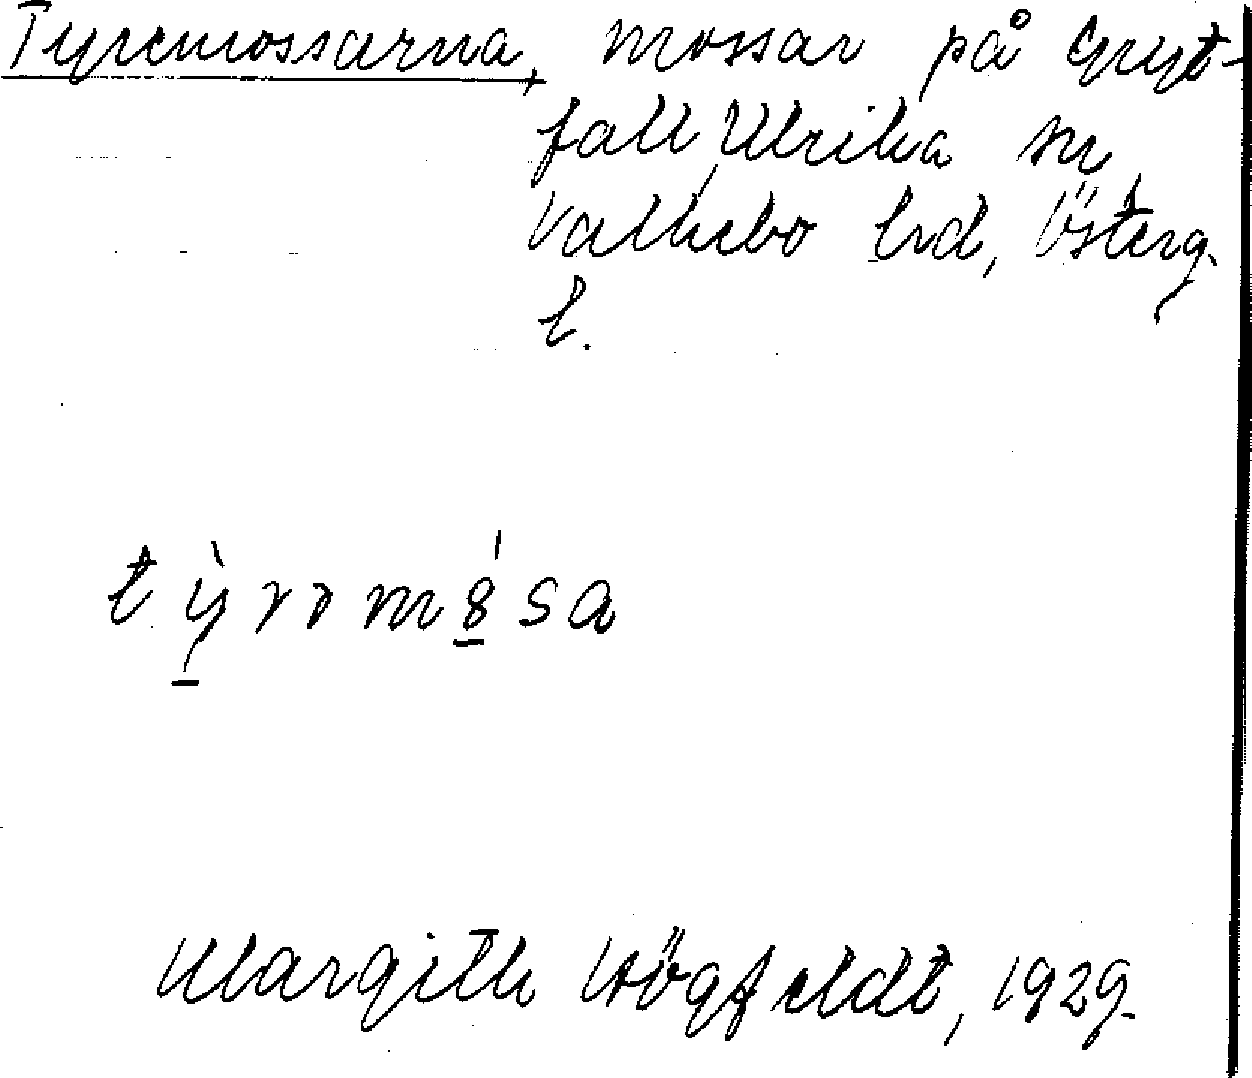 Tyremossarna, mossar på Gryt-
fall, Ulrika sn,
Valkebo hd, Österg.
l.
tỳromósa
Margith Högfeldt, 1929.